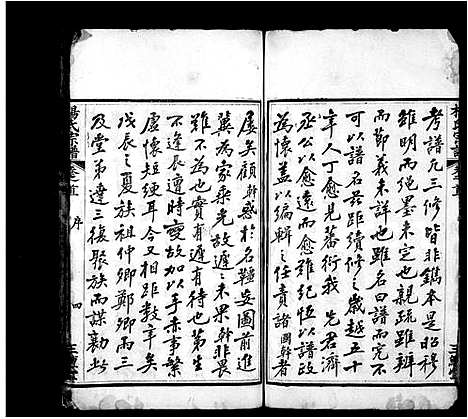 考譜凡三修皆非鐫本是昭穆
雖明而繩墨未定也親疏雖辨
而節義未詳也雖名曰譜而究不
可以譜名茲距續修之歲越五十
年人丁愈見蕃衍我先君濟
丞公以愈遠而愈難紀恆以譜政
為懷蓋以編輯之任責諸國幹者
屢矣顧幹惑於名韁妄圖前進
冀為家乘光故遲之未果幹非畏
難不為也實有遲有待也第生
不逢辰遭時多故加以手素事繁
虛懷短綆耳今又相距數年矣
戊辰之夏族祖仲卿鄭卿而三
及堂弟達三復聚族而謀勸此
楊氏宗譜
卷之首
序
四